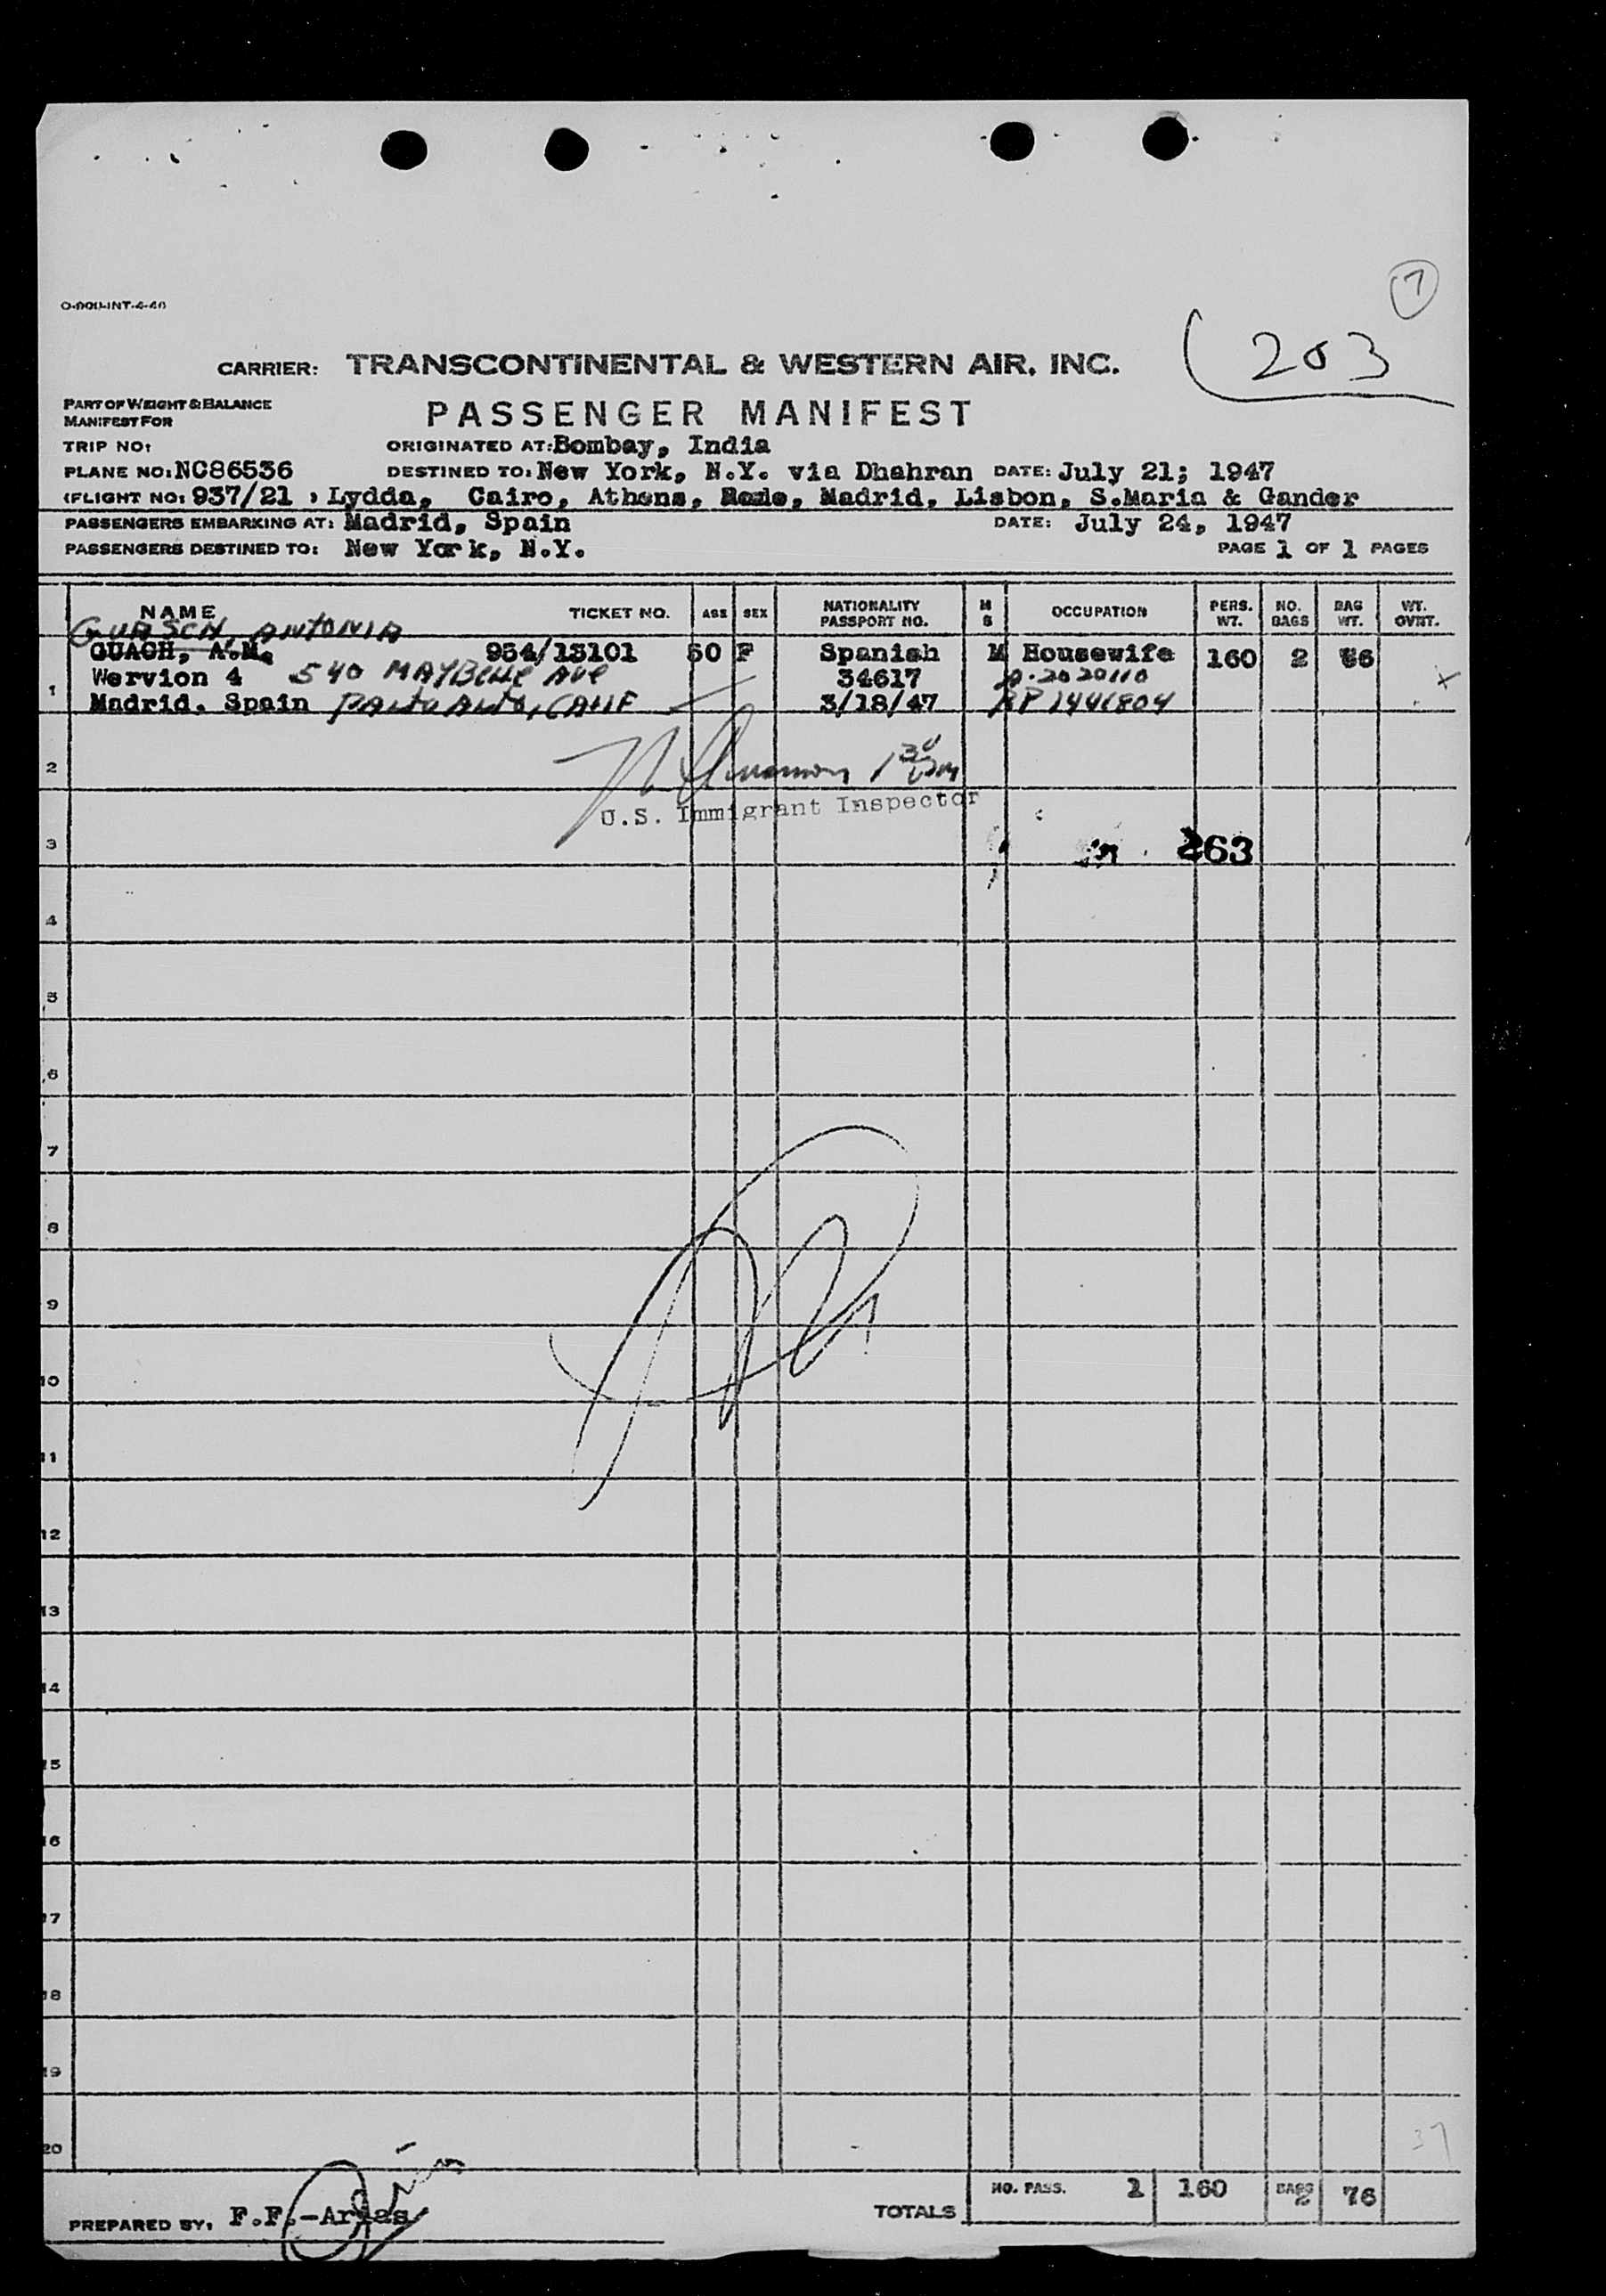 7
203
CARRIER: TRANSCONTINENTAL & WESTERN AIR, INC.
PART OF WEIGHT & BALANCE
MANIFEST FOR
PASSENGER MANIFEST
TRIP NO: ORIGINATED AT: Bombay, India
PLANE NO: NC86536 DESTINED TO: New York, N.Y. via Dhahran DATE: July 21; 1947
(FLIGHT NO: 937/21 , Lydda, Cairo, Athens, Madrid, Lisbon, S.Maria & Gander
PASSENGERS EMBARKING AT: Madrid, Spain DATE: July 24, 1947
PASSENGERS DESTINED TO: New York, N.Y. PAGE 1 OF 1 PAGES
NAME TICKET NO. AGE SEX NATIONALITY PASSPORT NO. M S OCCUPATION PERS. WT. NO. BAGS BAG WT. WT. OVRT.
ANTONIA
GUACH, A.M. 954/13101 50 F Spanish M Housewife 160 2
Wervion 4 540 MAYBELLE AVE 34617
1
Madrid, Spain PALO ALTO, CALIF 3/18/47 RP 1441804
2
U.S. Immigrant Inspector
3 263
4
5
6
7
8
9
10
11
12
13
14
15
16
17
18
19
37
20
TOTALS NO. PASS. 1 160 BAGS 2 76
PREPARED BY, F.F.-Arias